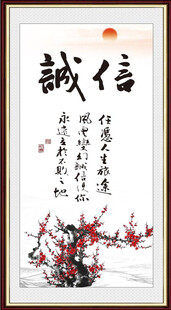 誠信
任憑人生旅途
風雲變幻誠信使你
永遠立於不敗之地